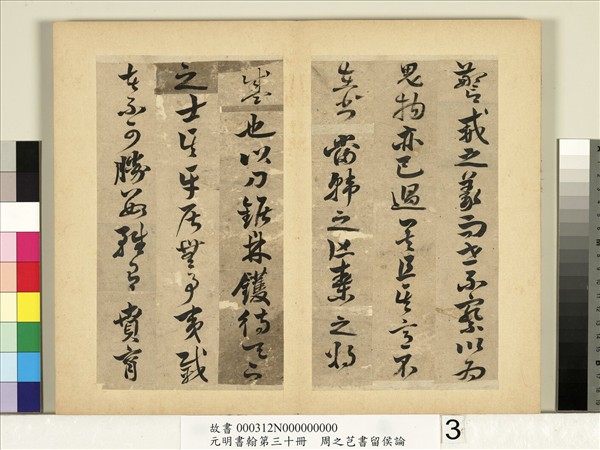 警戒之義而世不察以為
鬼物亦已過矣且其意不
在書當韓之亡秦之方
盛也以刀鋸鼎鑊待天下
之士其平居無事夷滅
者不可勝數雖有賁育
故書 000312N000000000
元明書翰第三十冊 周之芑書留侯論
3